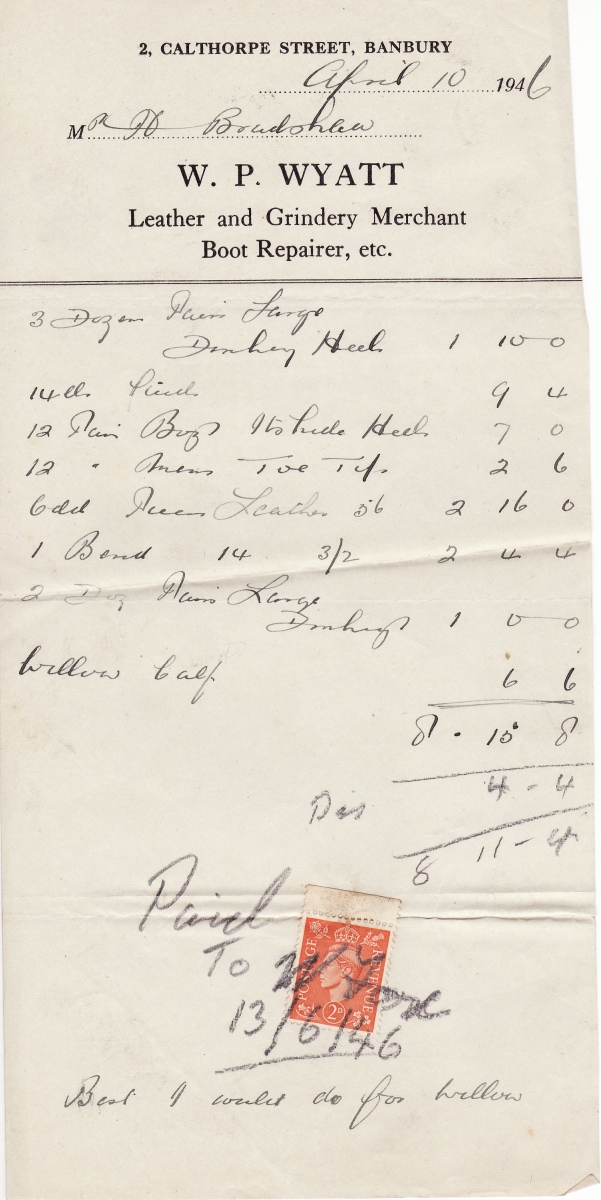 2, CALTHORPE STREET, BANBURY
April 10 1946
Mr H Bradshaw
W. P. WYATT
Leather and Grindery Merchant
Boot Repairer, etc.
3 Dozen Pairs Large
Donkey Heels 1 10 0
14 9 4
12 Pair Boys Heels 7 0
12 " Mens Toe Tips 2 6
Odd Pieces Leather 56 2 16 0
1 Bend 14 3/2 2 4 4
2 Doz Pairs Large
Donkeys 1 0 0
Willow Calf 6 6
8 - 15 8
Dis 4 - 4
8 11 - 4
Paid
To
POSTAGE REVENUE
2D
13/6/46
Best I could do for Willow